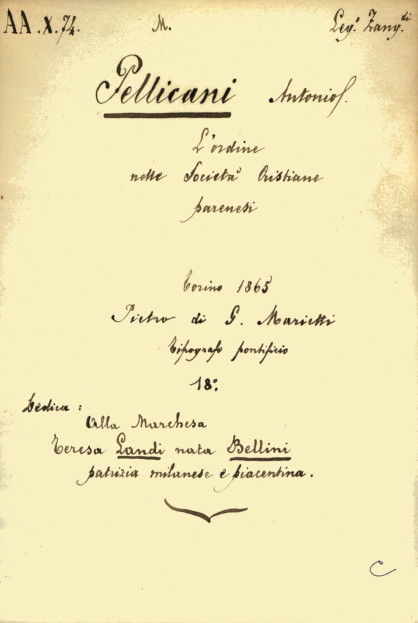 AA.X.74. M. Leg.º Zang.di
Pellicani Antonio S.
L'ordine
nelle Società Cristiane
parenesi
Torino 1865
Pietro di G. Marietti
Tipografo pontificio
18º.
Dedica :
Alla Marchesa
Teresa Landi nata Bellini
patrizia milanese e piacentina.
C